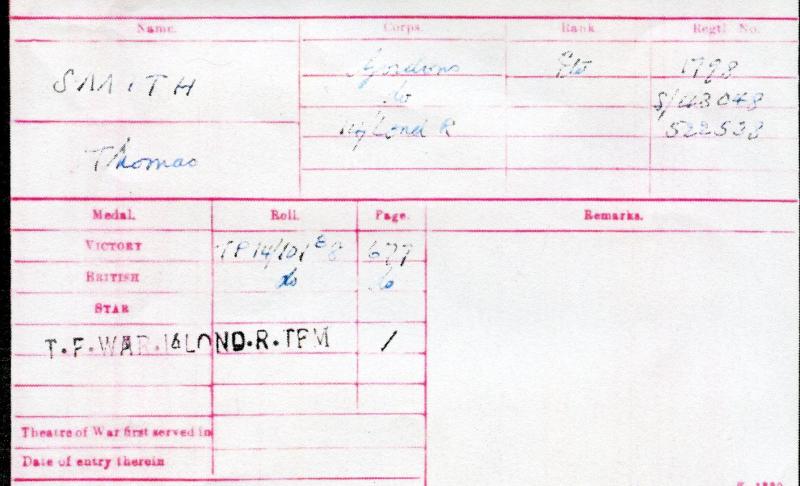 Name. Corps. Rank Regtl. No.
SMITH Gordons Pte 1798
do S/
14/Lond R 522538
Thomas
Medal. Roll. Page. Remarks.
VICTORY TP14/101 B8 677
BRITISH do do
STAR
T.F.WAR. LOND.R.TFM /
Theatre of War first served in
Date of entry therein